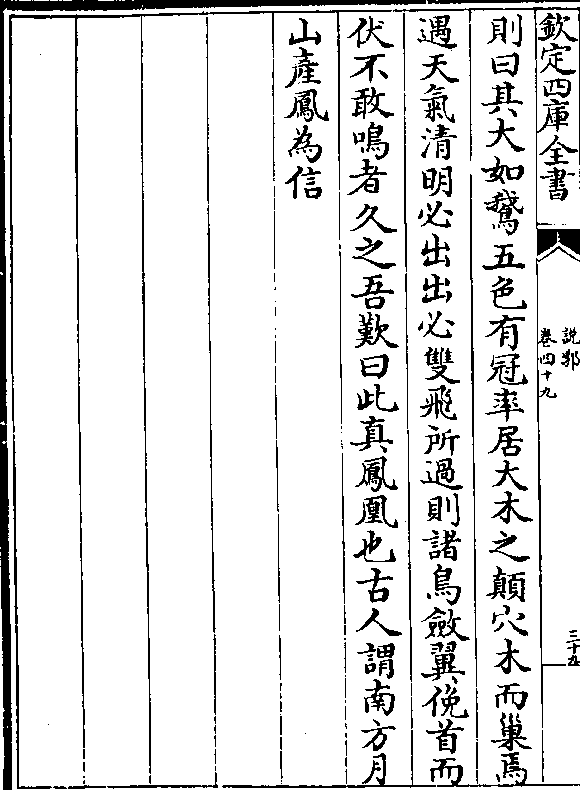 欽定四庫全書
説郛
卷四十九
三十九
則曰其大如鵞五色有冠率居大木之顛穴木而巢焉
遇天氣清明必出出必雙飛所過則諸鳥斂翼俛首而
伏不敢鳴者久之吾歎曰此真鳳凰也古人謂南方月
山產鳳為信